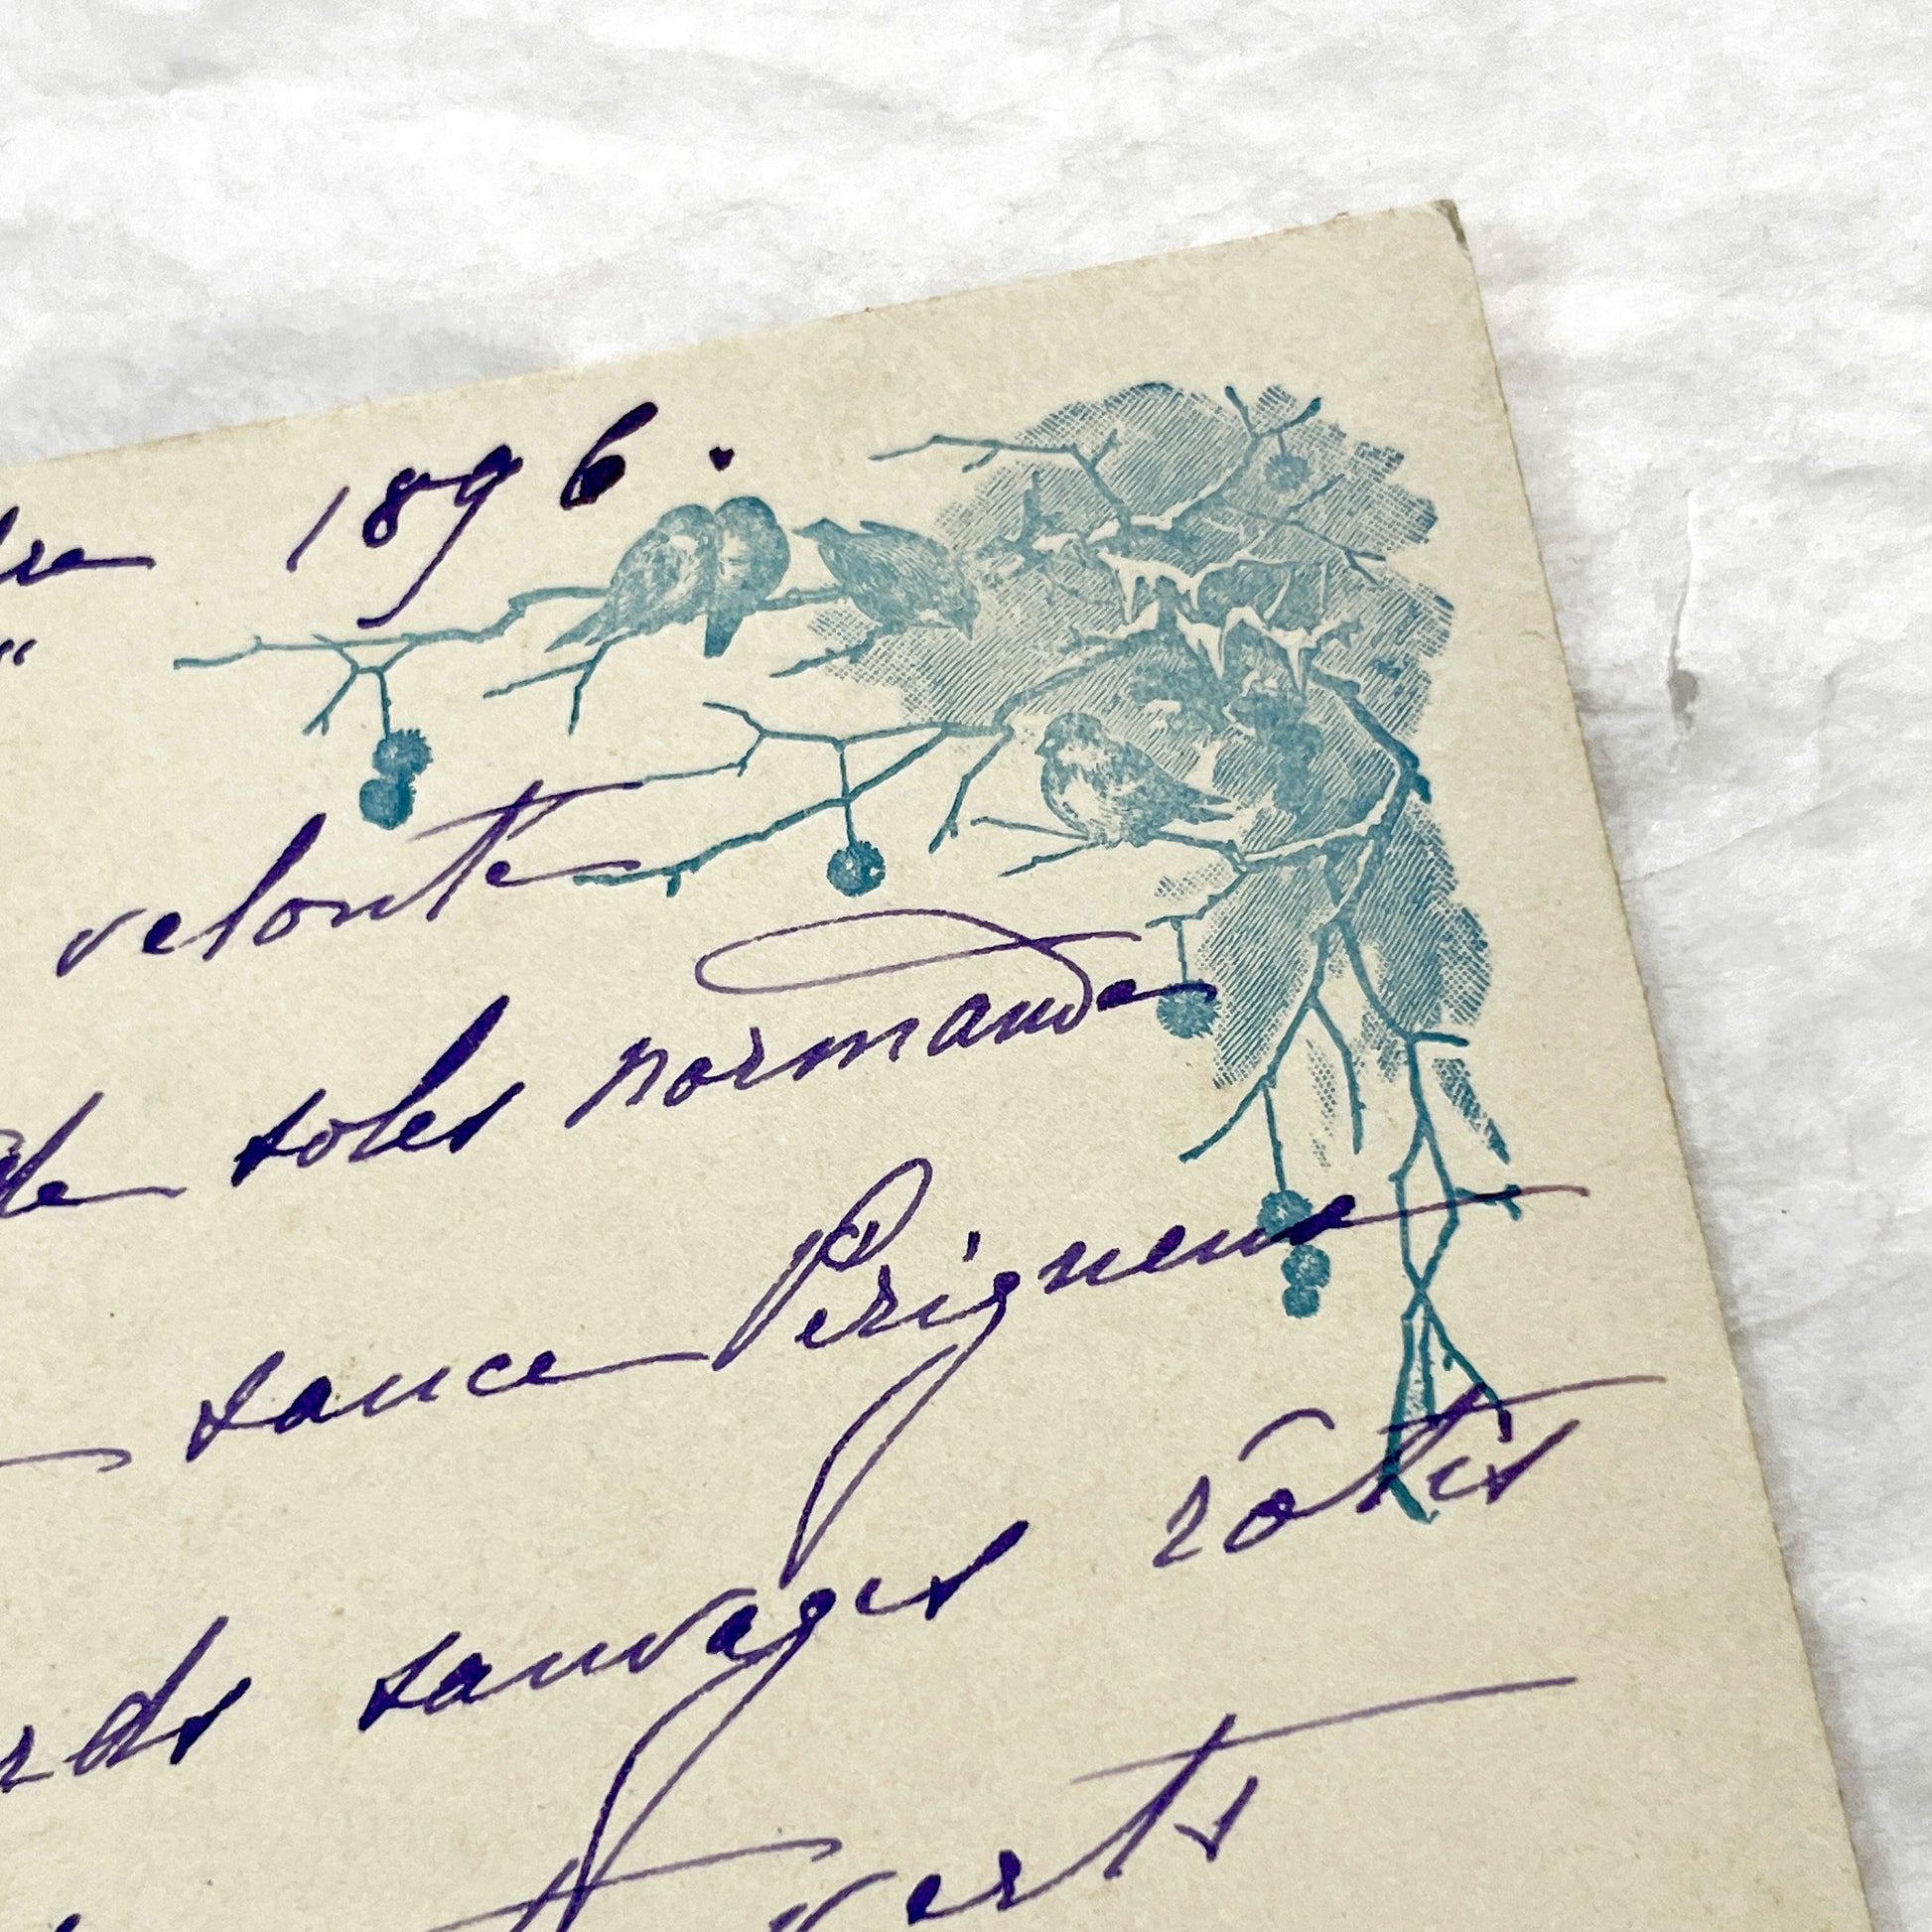 bre 1896.
"
velouté
de soles normande
sauce Périgueux
rds sauvages rôtis
verts